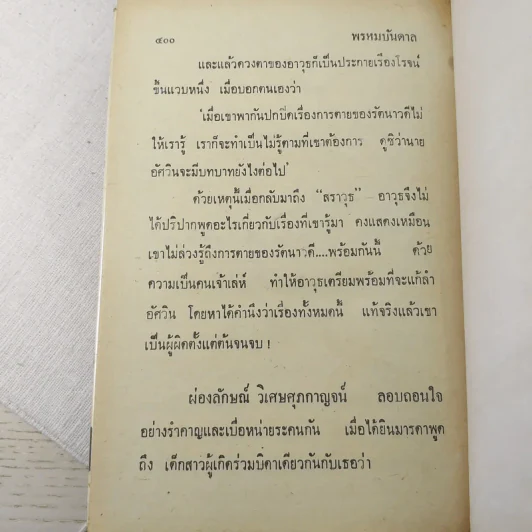 ๔๐๐ พรหมบันดาล
และแล้วดวงตาของอาวุธก็เป็นประกายเรืองโรจน์
ขึ้นแวบหนึ่ง เมื่อบอกตนเองว่า
'เมื่อเขาพากันปกปิดเรื่องการตายของรัตนาวดีไม่
ให้เรารู้ เราก็จะทำเป็นไม่รู้ตามที่เขาต้องการ ดูซิว่านาย
อัศวินจะมีบทบาทยังไงต่อไป'
ด้วยเหตุนี้เมื่อกลับมาถึง "สราวุธ" อาวุธจึงไม่
ได้ปริปากพูดอะไรเกี่ยวกับเรื่องที่เขารู้มา คงแสดงเหมือน
เขาไม่ล่วงรู้ถึงการตายของรัตนาวดี....พร้อมกันนี้ ด้วย
ความเป็นคนเจ้าเล่ห์ ทำให้อาวุธเตรียมพร้อมที่จะแก้ลำ
อัศวิน โดยหาได้คำนึงว่าเรื่องทั้งหมดนี้ แท้จริงแล้วเขา
เป็นผู้ผิดตั้งแต่ต้นจนจบ !
ผ่องลักษณ์ วิเศษศุภกาญจน์ ลอบถอนใจ
อย่างรำคาญและเบื่อหน่ายระคนกัน เมื่อได้ยินมารดาพูด
ถึง เด็กสาวผู้เกิดร่วมบิดาเดียวกันกับเธอว่า